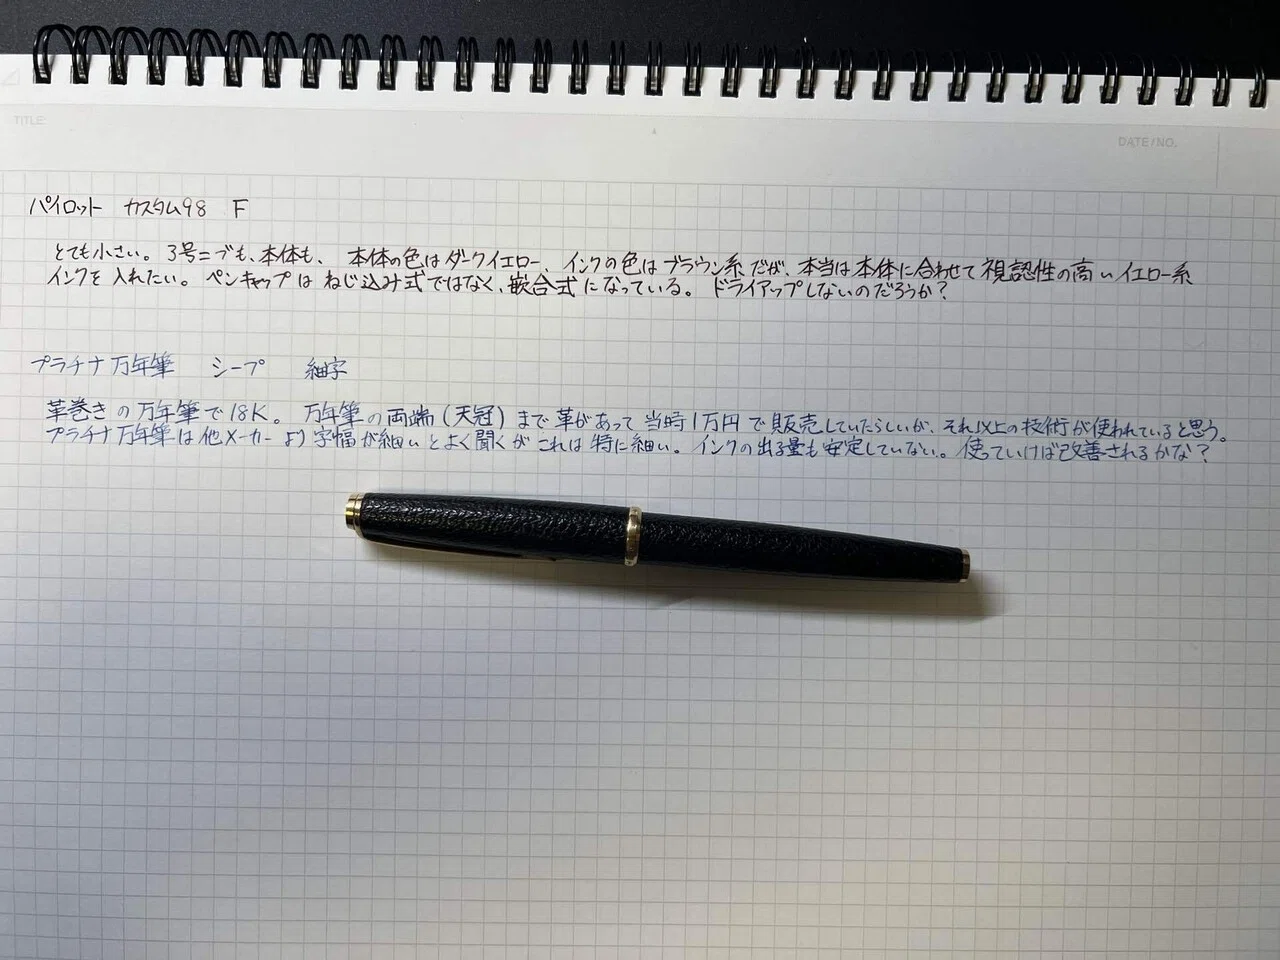 TITLE:
DATE/NO.
パイロット カスタム98 F
とても小さい。3号ニブも、本体も、本体の色はダークイエロー、インクの色はブラウン系だが、本当は本体に合わせて視認性の高いイエロー系
インクを入れたい。ペンキャップはねじ込み式ではなく、嵌合式になっている。ドライアップしないのだろうか?
プラチナ万年筆 シープ 細字
革巻きの万年筆で18K。万年筆の両端(天冠)まで革があって当時1万円で販売していたらしいが、それ以上の技術が使われていると思う。
プラチナ万年筆は他メーカーより字幅が細いとよく聞くがこれは特に細い。インクの出る量も安定していない。使っていけば改善されるかな?